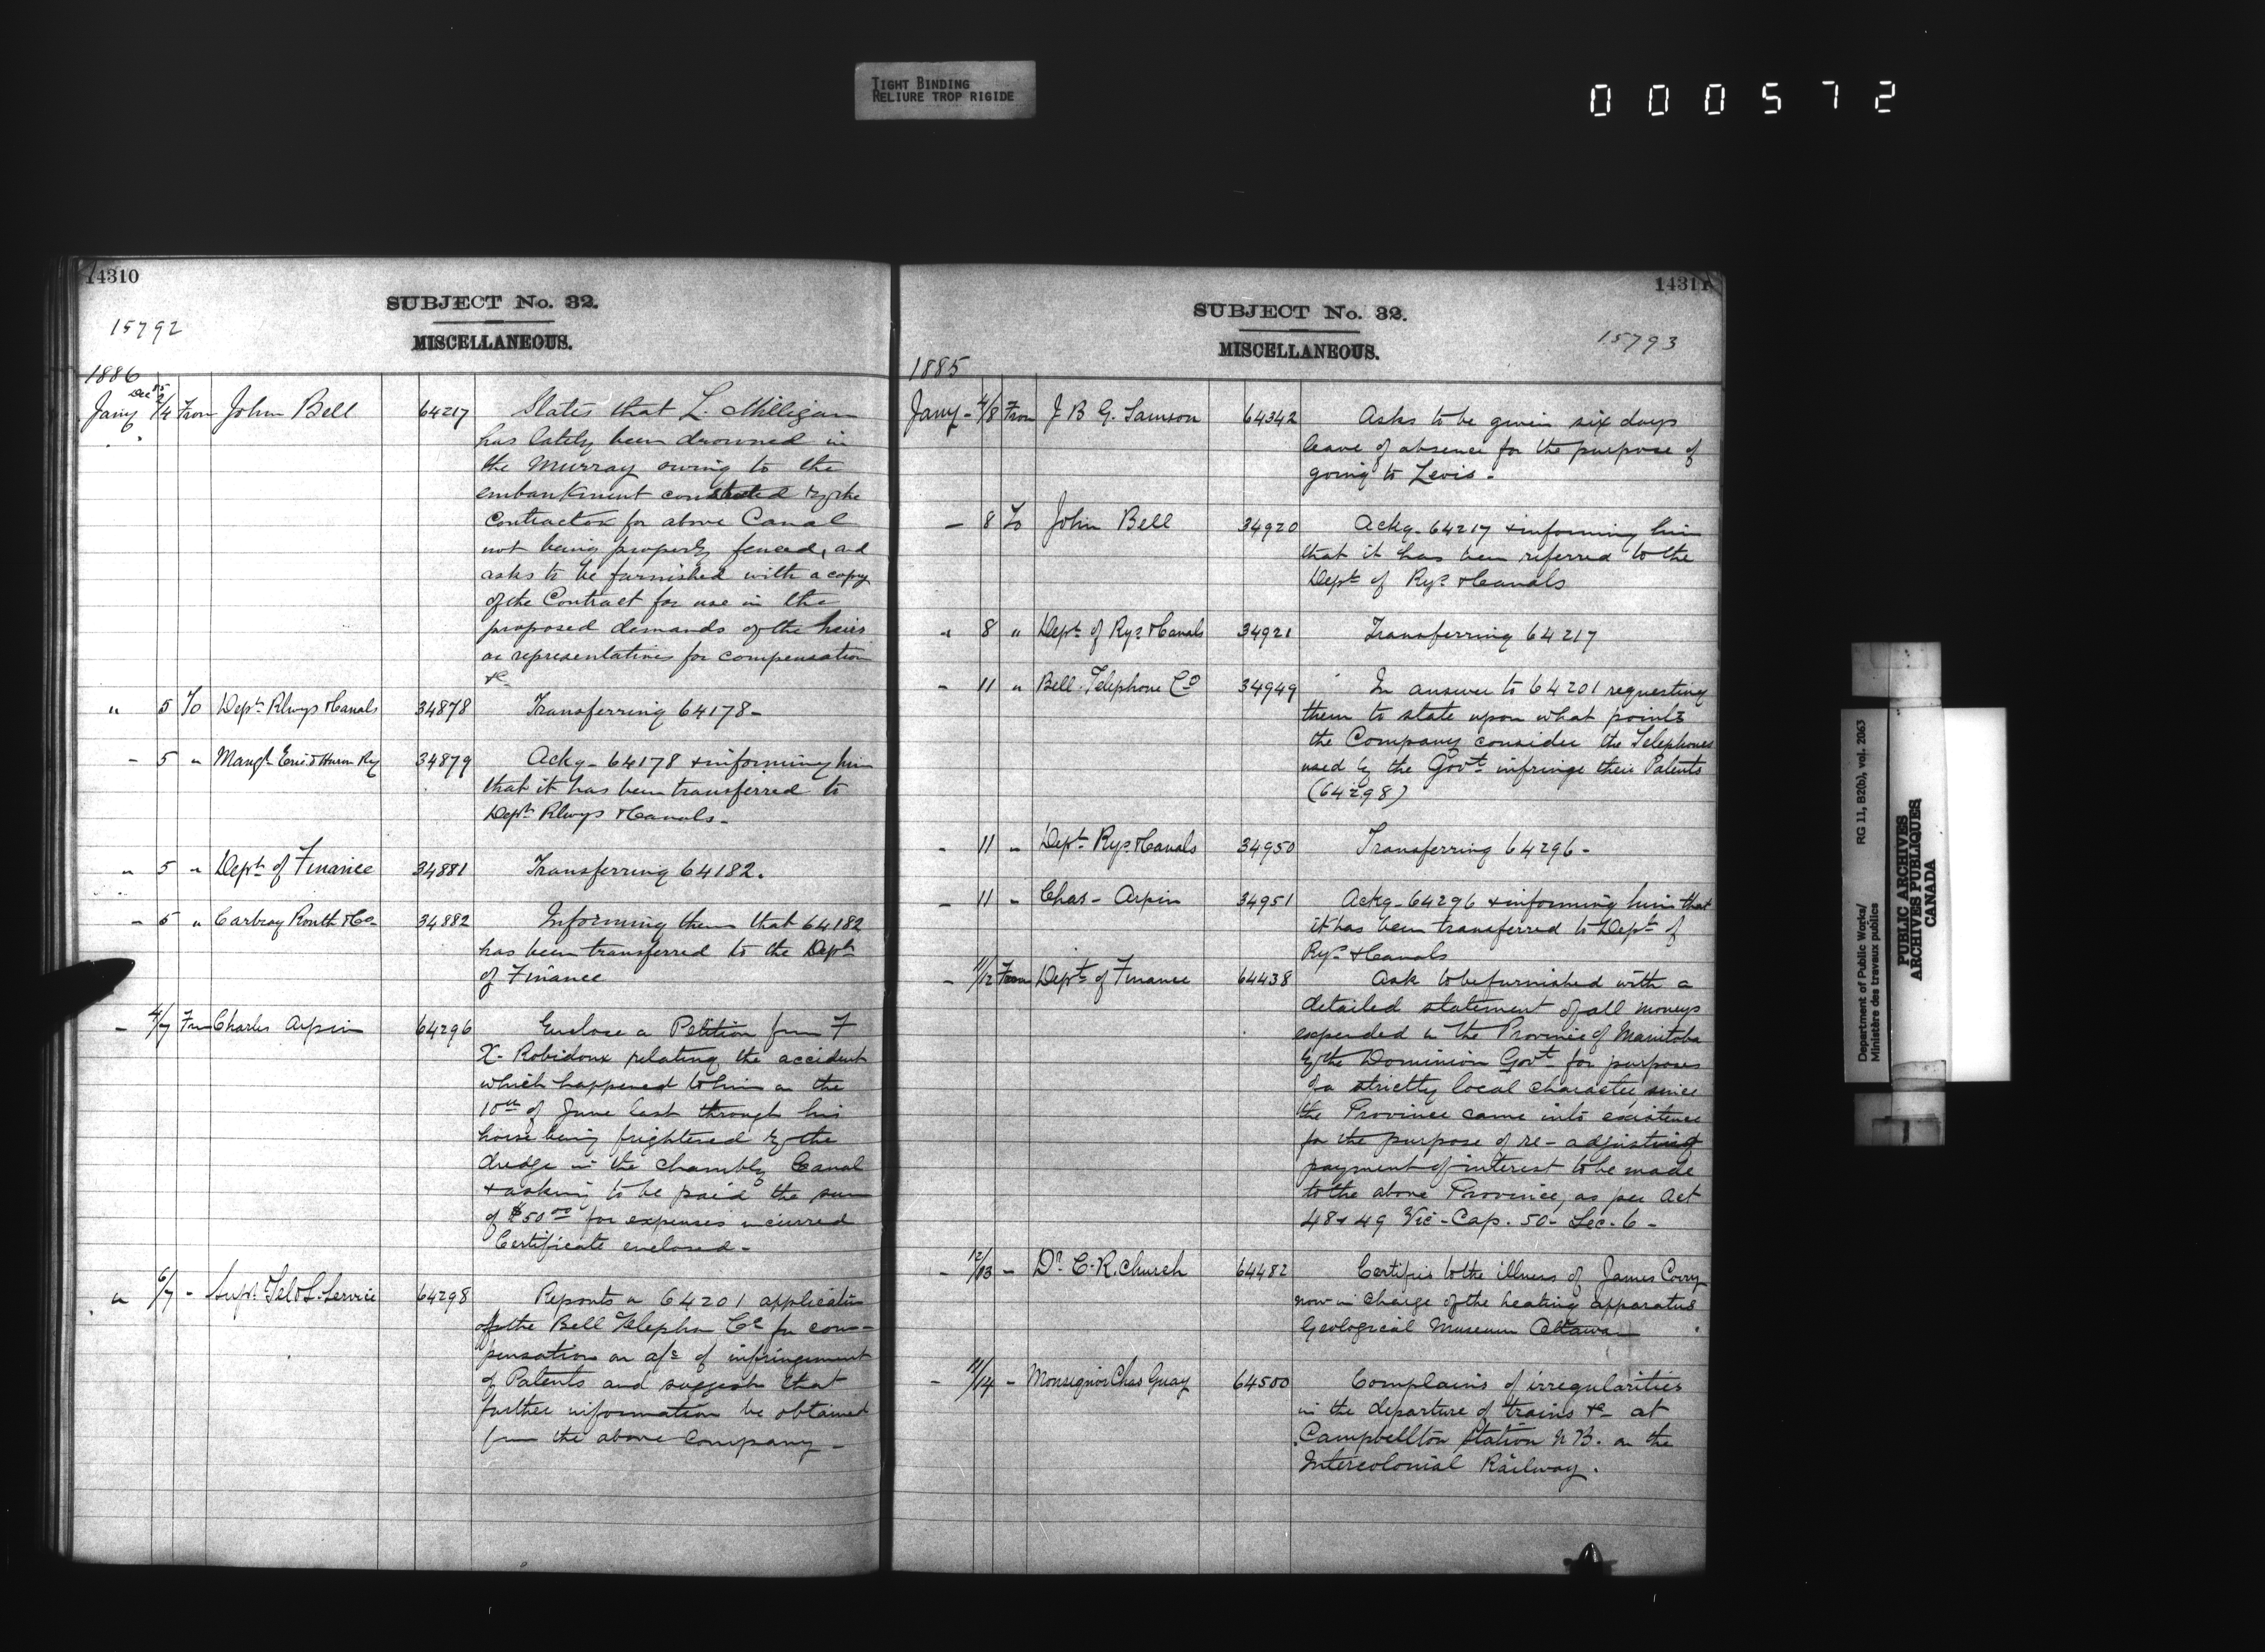 TIGHT BINDING
RELIURE TROP RIGIDE
000572
14310
SUBJECT No. 32.
15792
MISCELLANEOUS.
1886
Jany Dec 85 2/4 From John Bell 64217 States that L. Milligan
6
has lately been drowned in
the Murray owing to the
embankment constructed by the
Contractor for above Canal
not being properly fenced, and
asks to be furnished with a copy
of the Contract for use in the
proposed demands of the heirs
or representatives for compensation
&c
" 5 To Dept Rlwys & Canals 34878 Transferring 64178-
- 5 " Mangr Erie & Huron Ry 34879 Ackg- 64178 & informing him
that it has been transferred to
Dept Rlwys & Canals-
" 5 " Dept of Finance 34881 Transferring 64182.
- 5 " Carbray Routh & Co- 34882 Informing them that 64182
has been transferred to the Dept
of Finance
- 4/7 From Charles Arpin 64296 Enclose a Petition from F
X- Robidoux relating the accident
which happened to him on the
10th of June last through his
horse being frightened by the
dredge in the Chambly Canal
& asking to be paid the sum
of $50 00 for expenses incurred
Certificate enclosed-
" 6/7 - Supt Tel & S. Service 64298 Reports on 64201 application
of the Bell Telephon Co for com-
pensation on a/c of infringement
of Patents and suggests that
further information be obtained
from the above Company-
14311
SUBJECT No. 32.
15793
MISCELLANEOUS.
1885
Jany- 4/8 From J B G. Samson 64342 Asks to be given six days
leave of absence for the purpose of
going to Levis-
- 8 To John Bell 34920 Ackg- 64217 & informing him
that it has been referred to the
Dept of Rys & Canals
" 8 " Dept of Rys & Canals 34921 Transferring 64217
- 11 " Bell Telephone Co 34949 In answer to 64201 requesting
them to state upon what points
the Company consider the Telephones
used by the Govt infringe their Patents
(64298)
- 11 " Dept Rys & Canals 34950 Transferring 64296-
- 11 " Chas- Arpin 34951 Ackg- 64296 & informing him that
it has been transferred to Dept of
Rys & Canals
- 11/12 From Dept of Finance 64438 Ask to be furnished with a
detailed statement of all moneys
expended in the Province of Manitoba
by the Dominion Govt for purposes
of a strictly local character, since
the Province came into existence
for the purpose of re-adjusting
payment of interest to be made
to the above Province, as per Act
48 & 49 Vic- Cap. 50- Sec. 6-
- 12/13 - Dr C. R. Church 64482 Certifies to the illness of James Corry
now in charge of the heating apparatus
Geological Museum Ottawa
- 11/14 - Monsignor Chas Guay 64500 Complains of irregularities
in the departure of trains &c- at
Campbellton Station N B. on the
Intercolonial Railway.
Department of Public Works/ RG 11, B2(b), vol. 2063
Ministère des travaux publics
PUBLIC ARCHIVES
ARCHIVES PUBLIQUES
CANADA